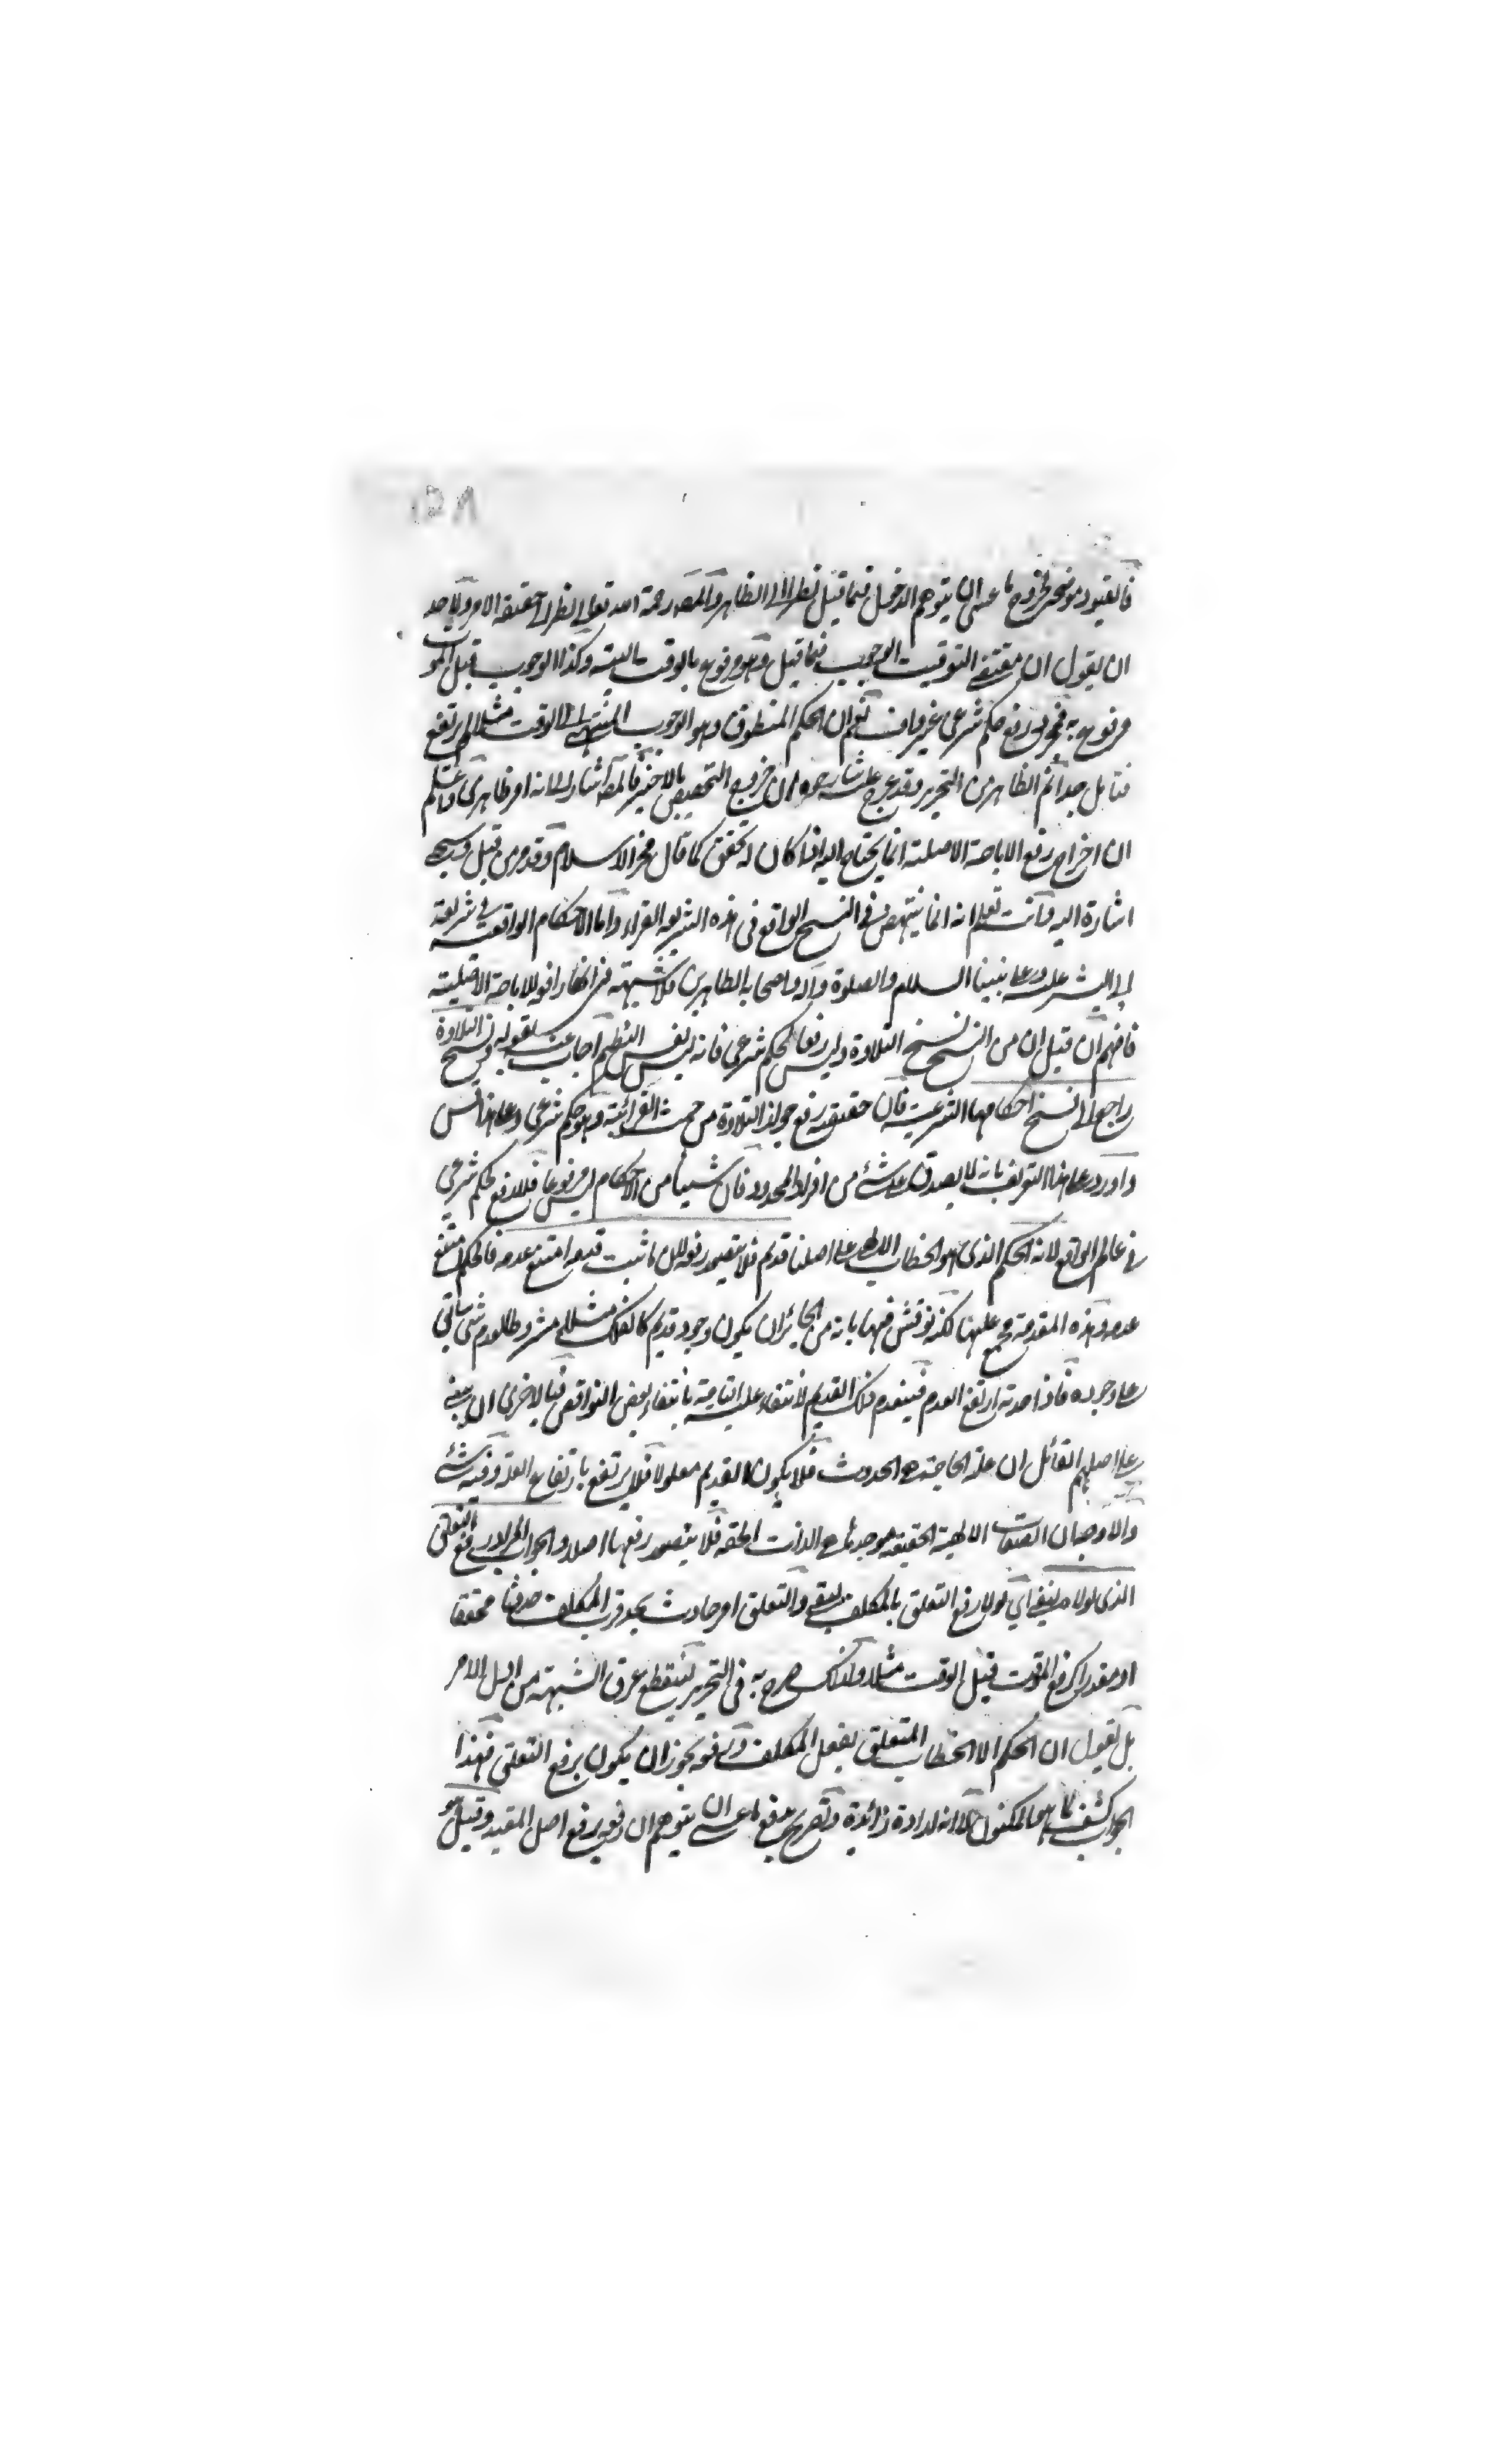 ١٥٨
فالقيود موضحة لخروج ما عسى ان يتوهم الدخول فيما قيل نظرا الى الظاهر والمصـ رحمة الله تعالى نظر الى حقيقة الامر ولاحد
ان يقول ان مقتضى التوقيت الوجوب فيما قيل وهو مرفوع بالوقت البتة وكذا الوجوب قبل الموت
مرفوع به فخرج رفع حكم شرعي غير واف نعم ان الحكم المنطوق وهو الوجوب المنتهى الى الوقت مثلا لم يرتفع
فتأمل جدا ثم الظاهر من التحرير وقد عرج عليه شارحوه ان خروج التخصيص بالاخير فالمصـ اشار الى انه امر ظاهري واعلم
ان اخراج رفع الاباحة الاصلية انما يحتاج اليه اذا كان له تحقق كما قال فخر الاسلام وقد مر من قبل وسيجيء
اشارة اليه وانت تعلم انه انما ينتهض في النسخ الواقع في هذه الشريعة الغراء واما الاحكام الواقعة في شريعة
ابي البشر عليه وعلى نبينا السلام والصلوة وآله واصحابه الطاهرين فلا شبهة في انها رافع للاباحة الاصلية
فافهم ان قيل ان من النسخ نسخ التلاوة وليس رفعا لحكم شرعي فانه ليس نفس النظم اجاب عنه بقوله ونسخ التلاوة
راجع الى نسخ احكامها الشرعية فان حقيقته رفع جواز التلاوة من حيث القرآنية وهو حكم شرعي وعلى هذا فقس
واورد على هذا التعريف بانه لا يصدق على شئ من افراد المحدود فان شيئا من الاحكام ليس مرفوعا فلا رفع لحكم شرعي
في عالم الواقع لانه الحكم الذي هو الخطاب الالهي على اصلنا قديم فلا يتصور رفعه لان ما ثبت قدمه امتنع عدمه فالحكم امتنع
عدمه وهذه المقدمة مجمع عليها لكنه نوقش فيها بانه من الجائز ان يكون وجود قديم كالفلك مثلا مشروطا لعدم شئ سابق
على وجوده فاذا حدث ارتفع العدم فينعدم ذلك القديم لانتفاء علته التامة بانتفاء بعض النواقص فبالاخرى ان يبنى
على اصلهم القائل ان علة الحاجة هي الحدوث فلا يكون القديم معلولا فلا يرتفع بارتفاع العلة وفيه شئ
والاوجه ان الصفات الالهية الحقيقية موجدها هي الذات الحقة فلا يتصور رفعها اصلا والجواب المراد رفع التعلق
الذي لولاه لبقي اي لولا رفع التعلق بالمكلف لبقي والتعلق امر حادث بحدوث المكلف حدوثا محققا
او مقدرا كرفع المؤقت قبل الوقت مثلا ولذلك صرح به في التحرير لينقطع عرق الشبهة من اول الامر
بل نقول ان الحكم الا الخطاب المتعلق بفعل المكلف ورفعه يجوز ان يكون برفع التعلق فهذا
الجواب كشف لما هو المكنون الا انه اراد زائدة وتصريح يدفع ما عسى ان يتوهم ان رفعه رفع اصل المقيد وقيل هو